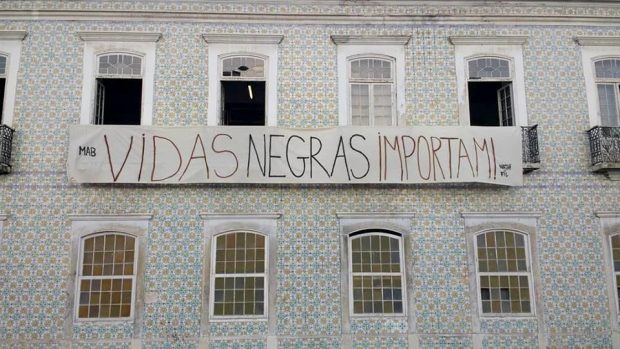 MAB VIDAS NEGRAS IMPORTAM!